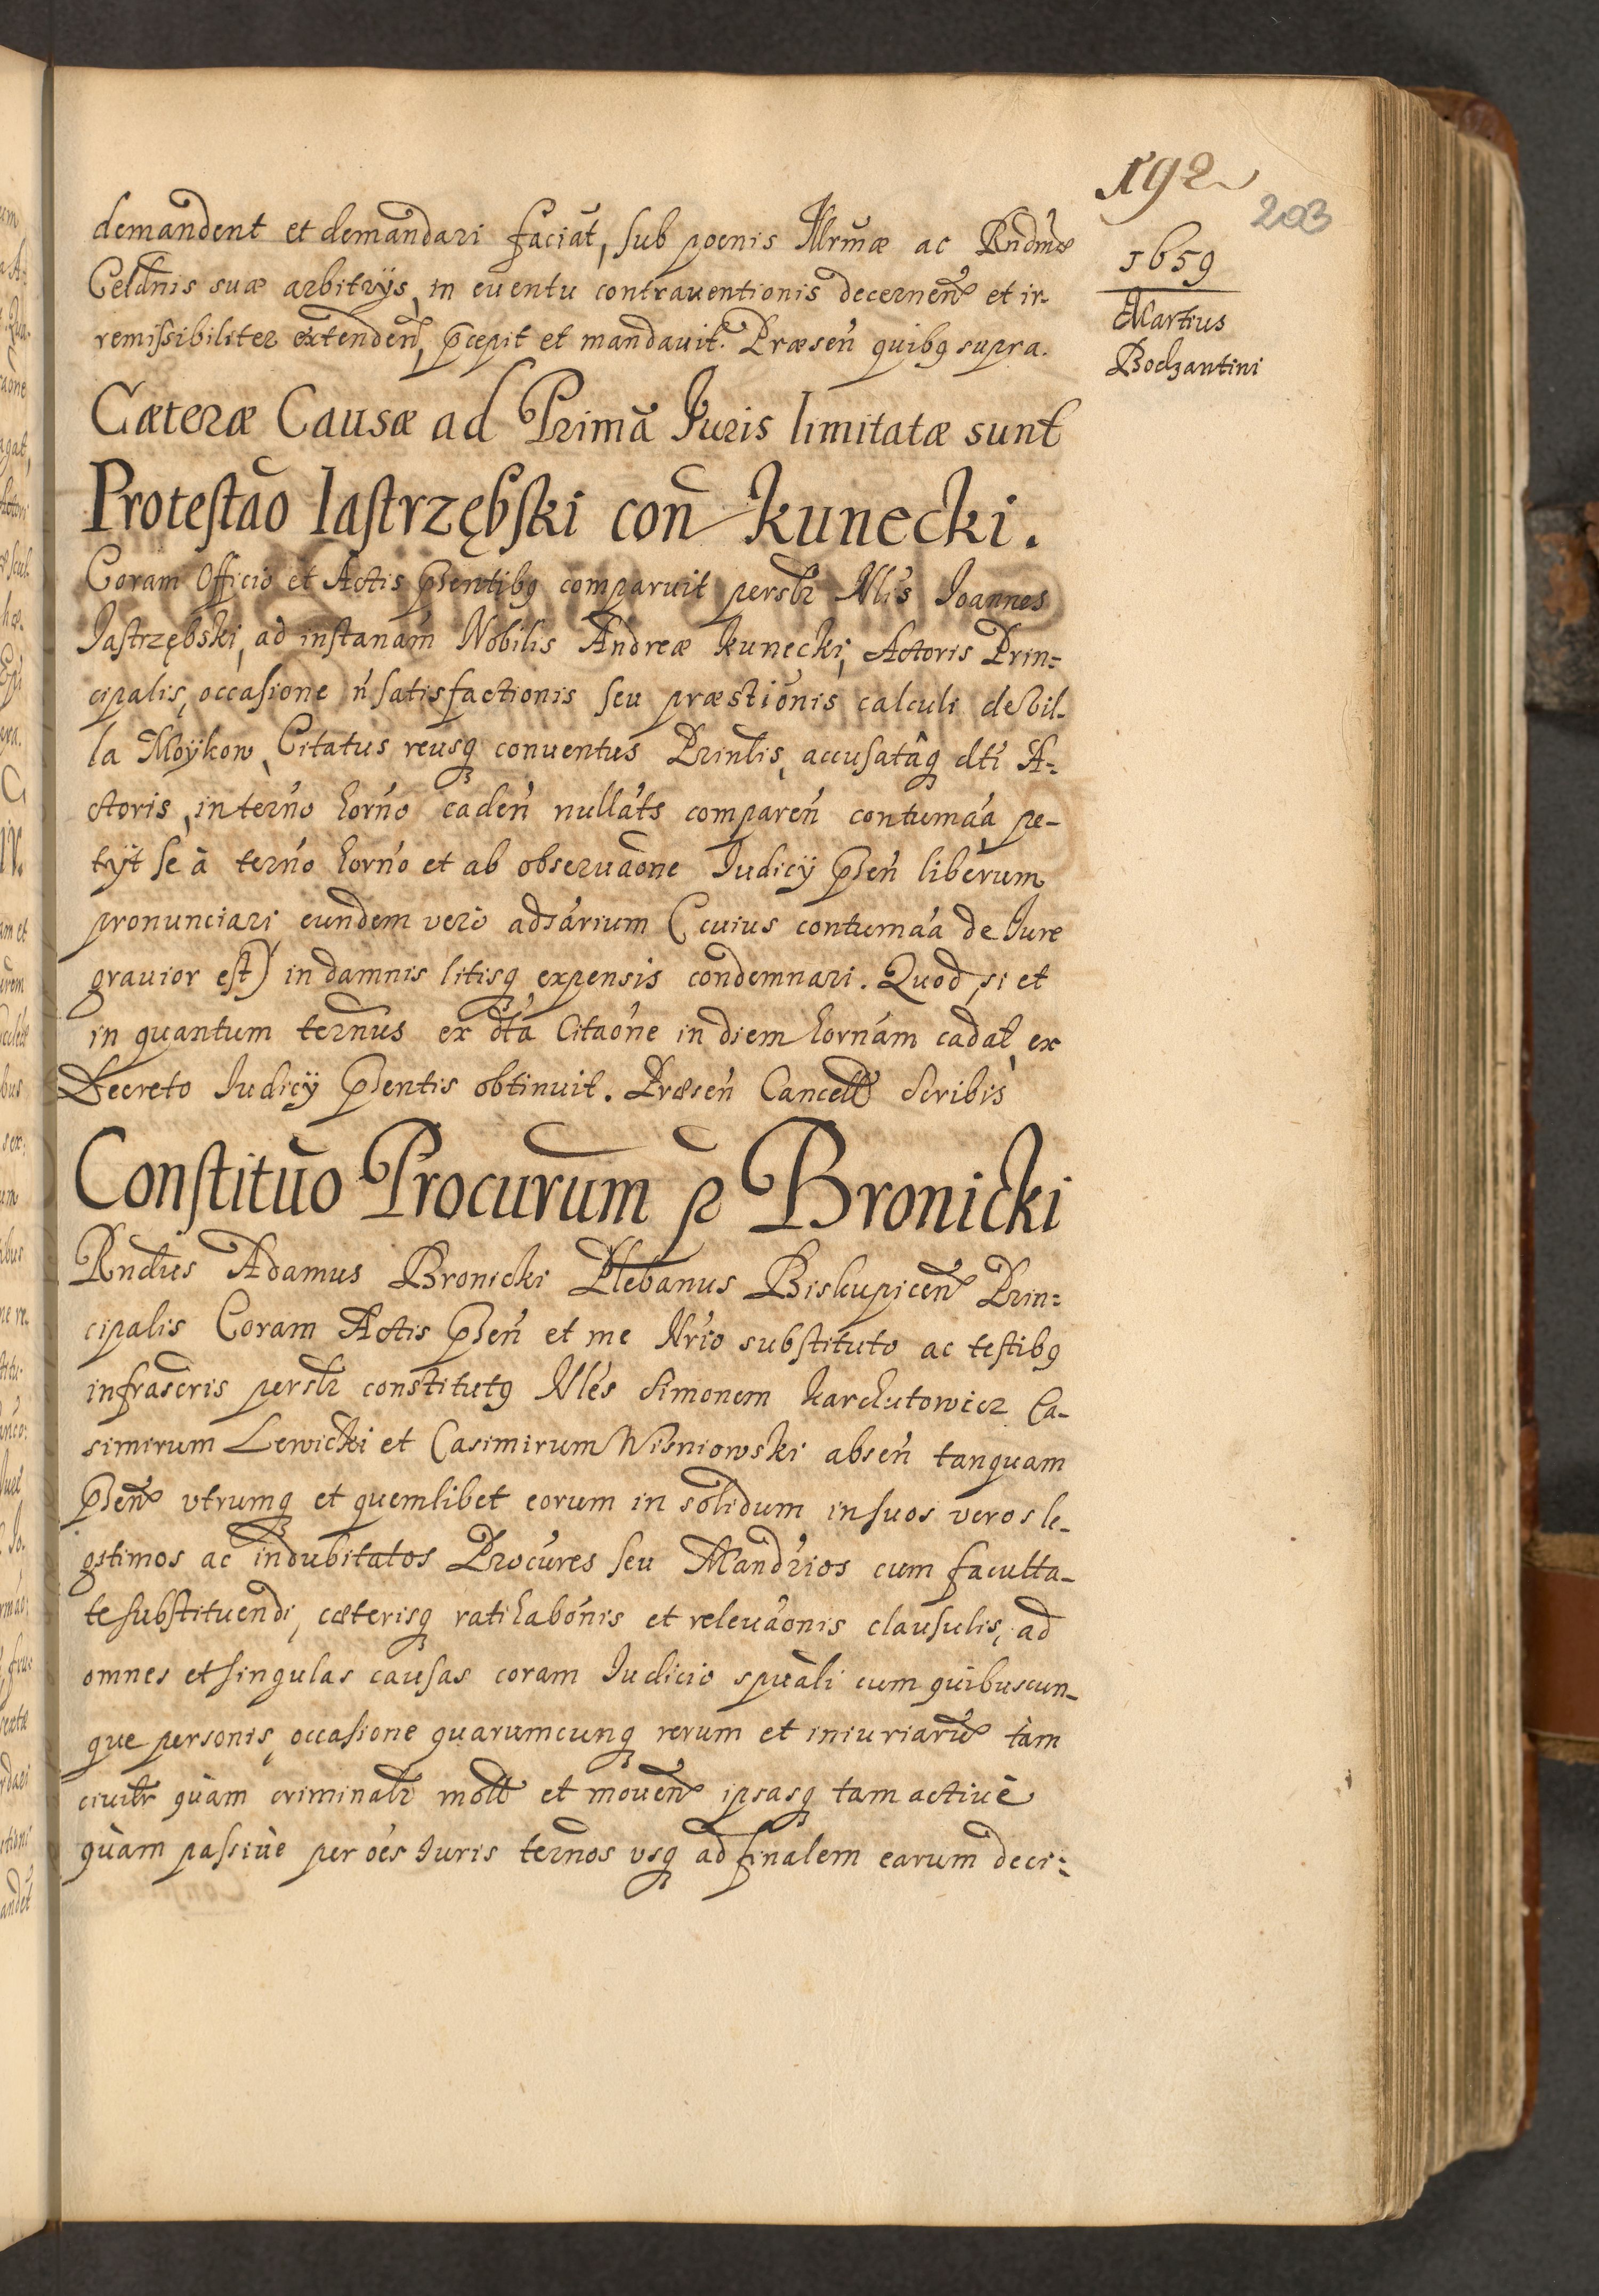 192
203
1659
Martius
Bodzantini
demandent et demandari faciāt, sub poenis Illrmæ ac Rndmæ
Celdnis suæ arbitrijs, in euentu contrauentionis decernen̄ et ir-
remissibiliter extenden̄, p̄cepit et mandauit. Præsen̄ quibq supra.
Cæteræ Causæ ad Primā Iuris limitatæ sunt
Protestāo Iastrzębski con̄ Kunecki.
Coram Officio et Actis p̄sentibq comparuit persłr Nlis Ioannes
Iastrzębski, ad instanām Nobilis Andreæ Kunecki, Actoris Prin=
cipalis, occasione n̄ satisfactionis seu præstiōnis calculi de Vil-
la Moÿkow, Citatus reusq conuentus Prinlis, accusatâq dti A=
ctoris, in terño horño caden̄ nullāts comparen̄ contumāa pe-
tÿt se à terño horño et ab obseruāone Iudicÿ p̄sen̄ liberum
pronunciari eundem verò adsārium (cuius contumāa de Iure
grauior est) in damnis litisq expensis condemnari. Quod, si et
in quantum terñus ex dtā Citaōne in diem hornām cadat, ex
Decreto Iudicÿ p̄sentis obtinuit. Præsen̄ Cancell Scribis
Constitūo Procurūm p Bronicki
Rndus Adamus Bronicki Plebanus Biskupicen̄ Prin=
cipalis Coram Actis p̄sen̄ et me Nrio substituto ac testibq
infrascris persłr constitutq Nles Simonem Karchutowicz Ca-
simirum Lewicki et Casimirum Wisniowski absen̄ tanquam
p̄sen̄ vtrumq et quemlibet eorum in solidum in suos veros le-
gitimos ac indubitatos Procūres seu Mandrios cum faculta-
te substituendi, cæterisq ratihabōnis et releuāonis clausulis, ad
omnes et singulas causas coram Iudicio spuāli cum quibuscun-
que personis, occasione quarumcunq rerum et iniuriarū tàm
ciuilr quàm criminalr mott et mouen̄ ipsasq tam actiuè
quàm passiuè per oēs Iuris terños vsq ad finalem earum deci=